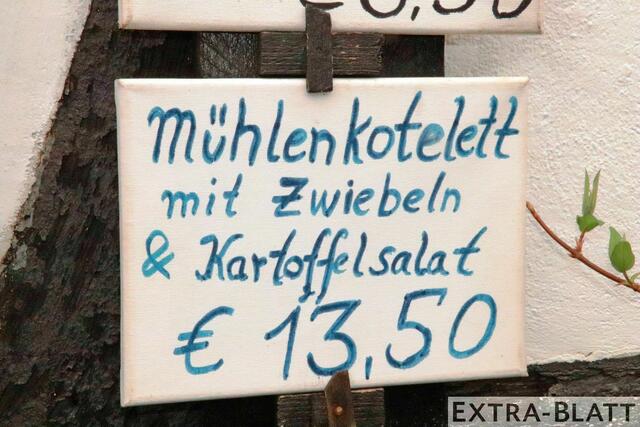 Mühlenkotelett
mit Zwiebeln
& Kartoffelsalat
€ 13,50
EXTRA-BLATT